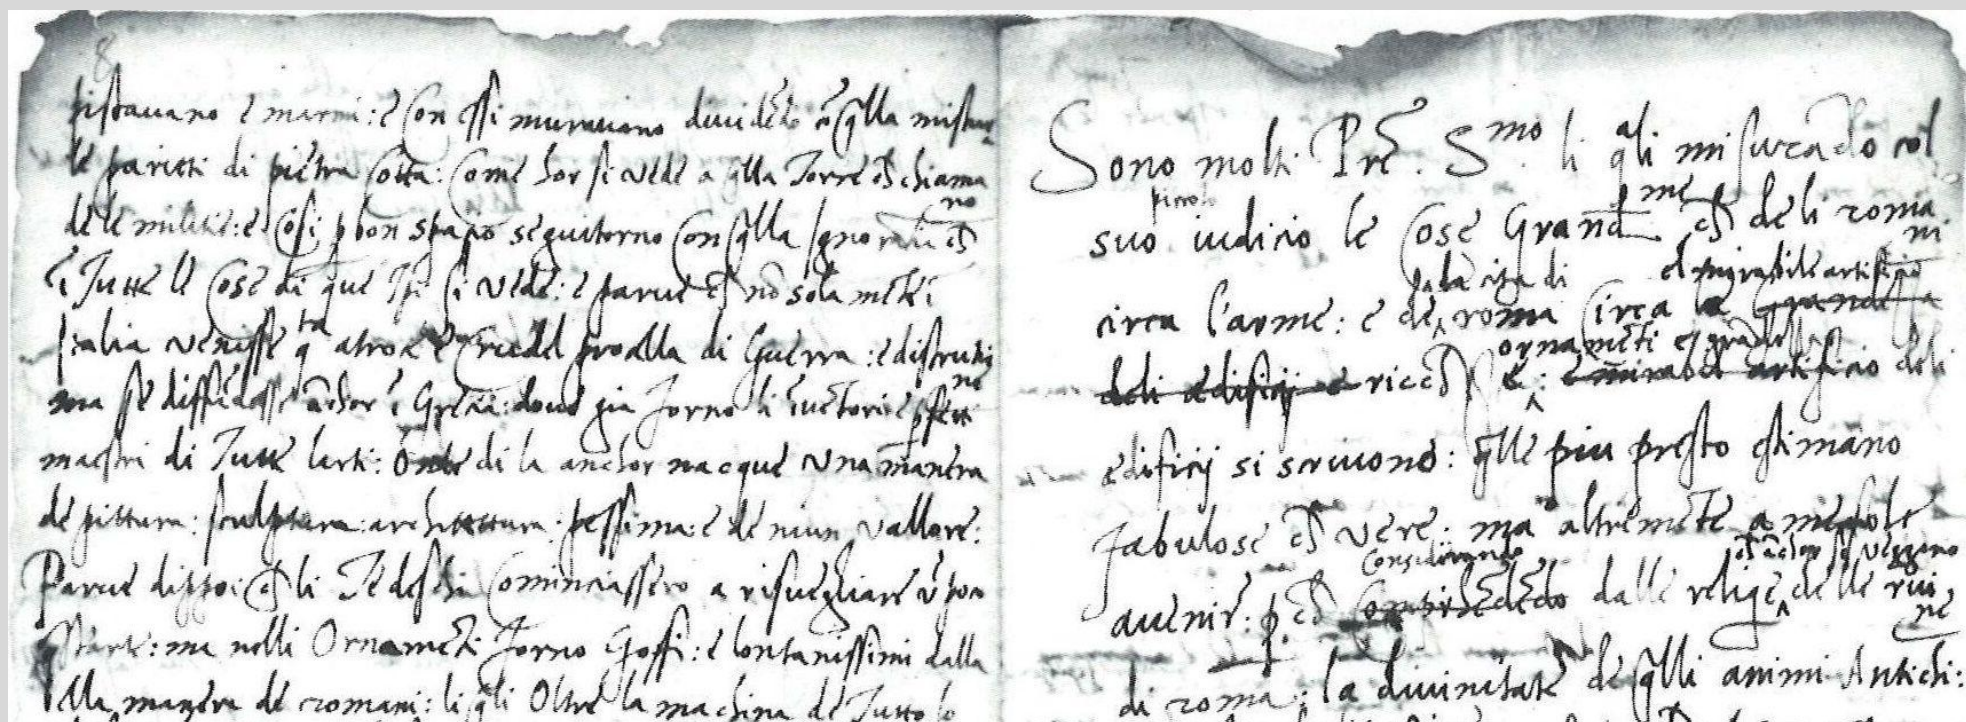 pistauano e marmi: e Con essi murauano diuidẽdo cõ q̃lla mistur
le parieti di pietra Cotta: Come hor si vede a q̃lla Torre ch̃ chiama
no
dele militie: e Cosi p bon spatio seguitorno Con q̃lla Ignorãtia ch̃
ĩ Tutte le Cose di que Tp̃i si vede: e parue ch̃ nõ sola mẽte ĩ
Italia venisse q̃ta atroce e Crudel proclla di Guerra: e distrutiõ
ne
ma se diffũdesse ãchor ĩ Grecia: doue gia forno li ĩuẽtori e pfetti
maestri di Tutte larti: Onde di la anchor nacque vna manera
de pittura: sculptura: architettura: pessima: e de niun vallore:
Parue dippoi ch̃ li Tedeschi Cominciassero a risuegliare ũ poco
st arte: ma nelli Ornamẽti forno Goffi: e lontanissimi dalla
lla manera de romani: li q̃li Oltre la machina de Tutto lo
Sono molti Prẽ. Smo. li q̃ali misurãdo col
piccolo
suo iudicio le Cose Grandissime ch̃ deli roma
ni
circa l'arme: e dela cita di roma Circa el mirabile artificio la Grandeza
ornamẽti e grãdeza
deli edificij e riceh̃ze: e mirabel artificio deli
edificij si scriuono: q̃lle piu presto estimano
fabulose ch̃ vere: ma altremẽte a me sole
Considerando ch̃ ãchor si veggono
auenire: p ch̃ dalle reliqe delle rui
ne
di roma: la diuinitate de q̃lli animi Antichi: